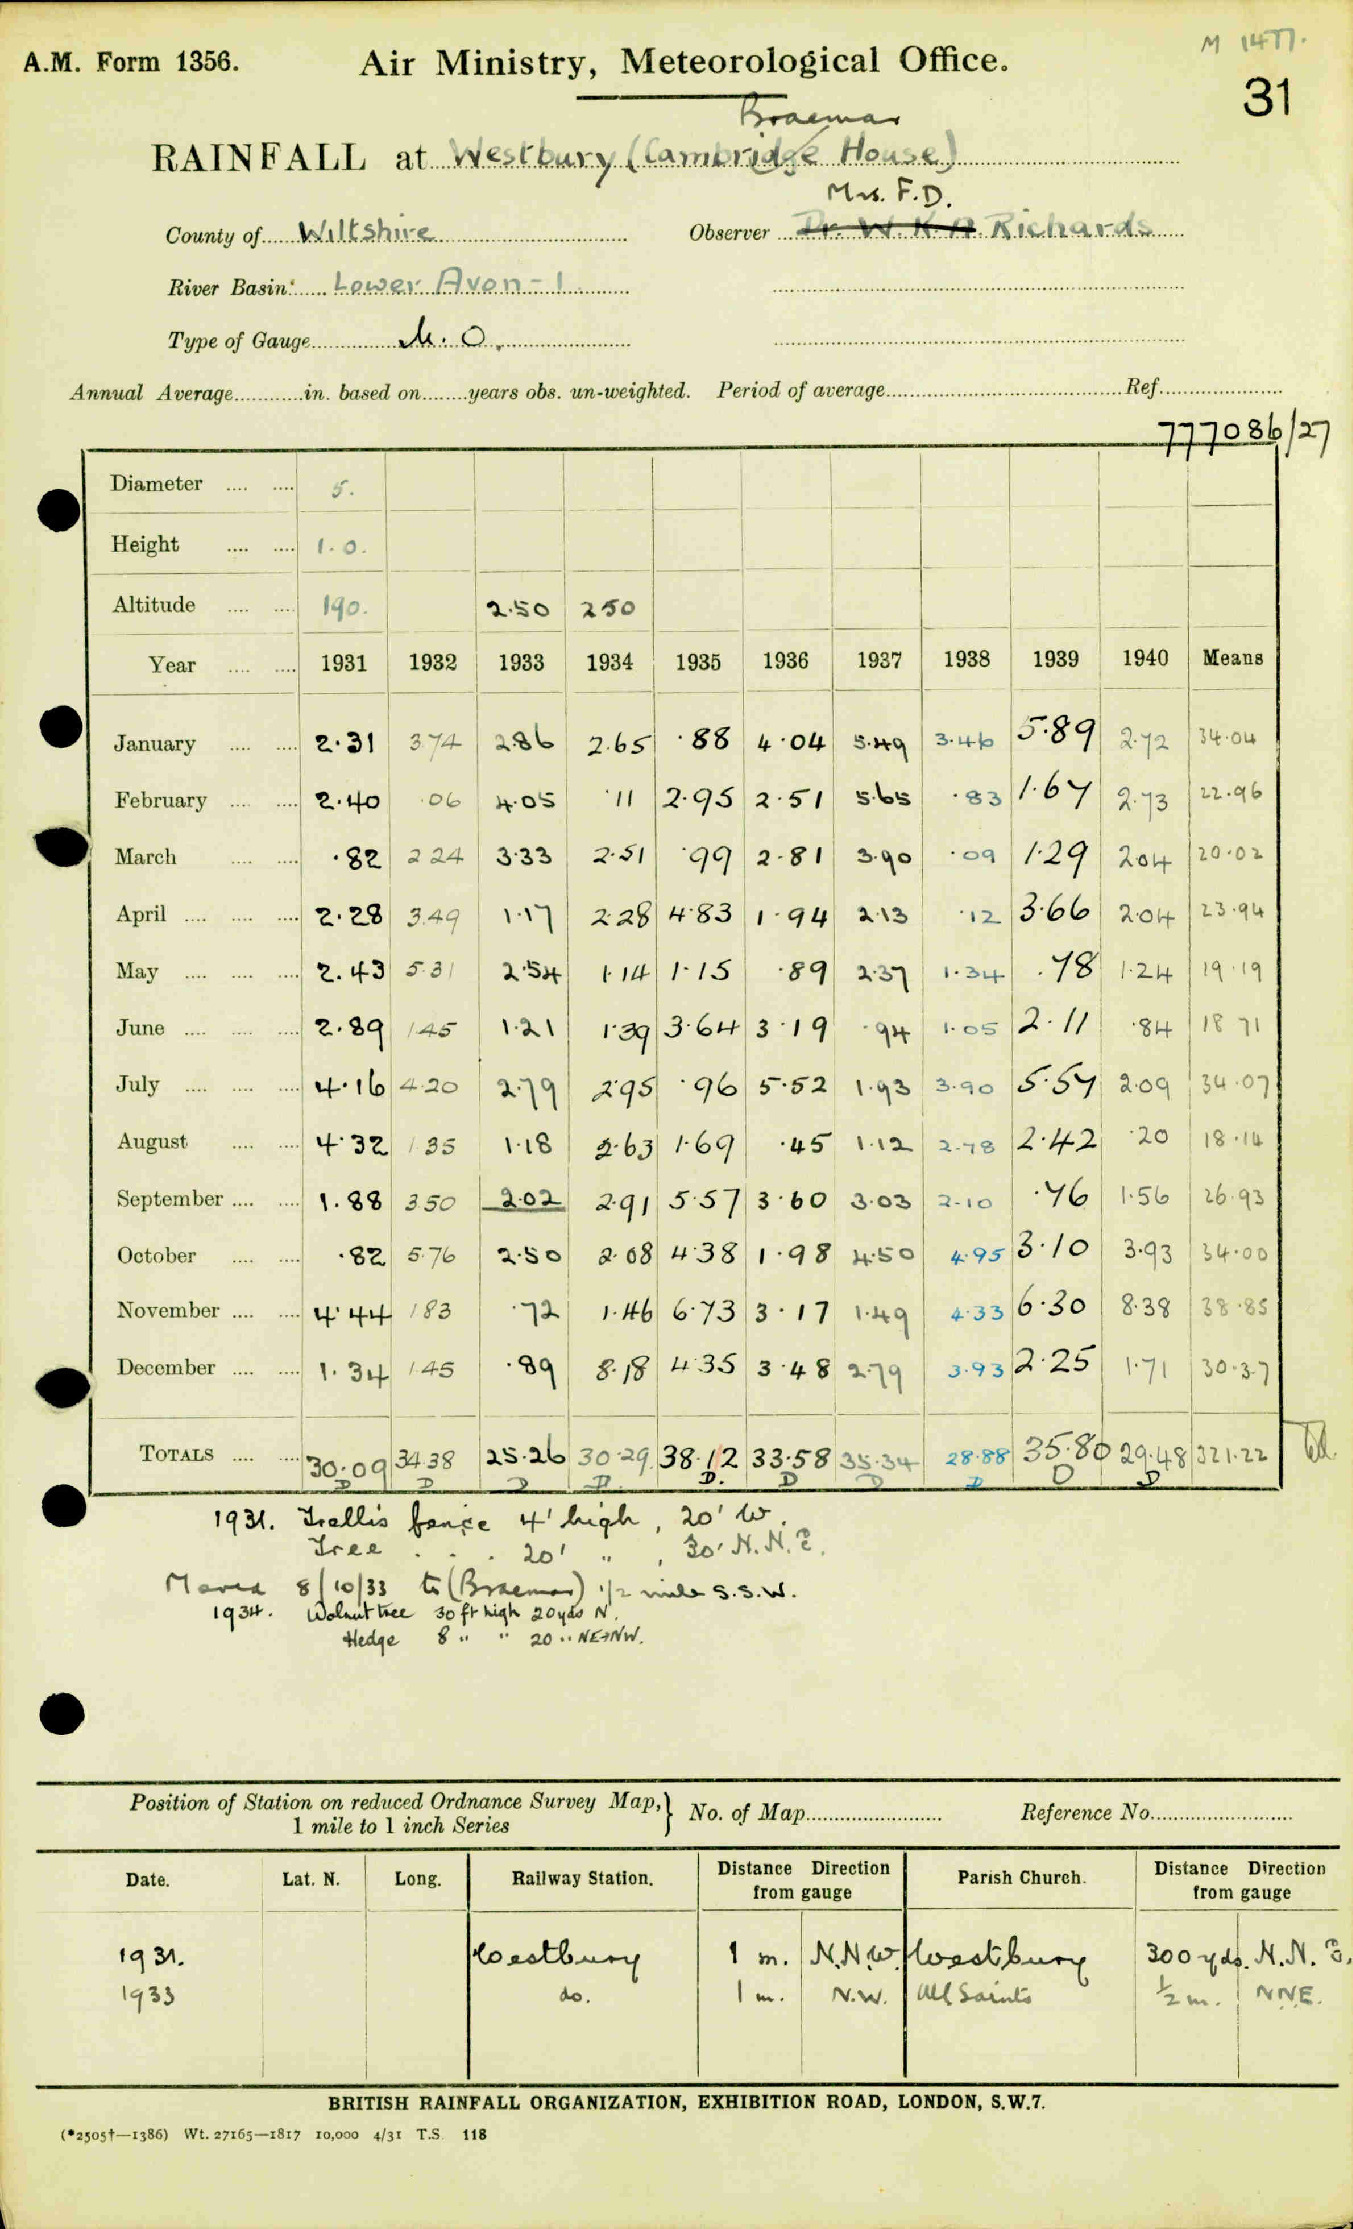 M 1477.
A.M. Form 1356. Air Ministry, Meteorological Office.
31
Braemar
RAINFALL at Westbury (Cambridge House)
Mrs. F.D.
County of Wiltshire Observer Dr. W. K. A. Richards
River Basin Lower Avon - 1
Type of Gauge M. O.
Annual Average in. based on years obs. un-weighted. Period of average Ref.
777086/27
Diameter 5.
Height 1.0.
Altitude 190. 2.50 250
Year 1931 1932 1933 1934 1935 1936 1937 1938 1939 1940 Means
January 2.31 3.74 2.86 2.65 .88 4.04 5.49 3.46 5.89 2.72 34.04
February 2.40 .06 4.05 .11 2.95 2.51 5.65 .83 1.67 2.73 22.96
March .82 2.24 3.33 2.51 .99 2.81 3.90 .09 1.29 2.04 20.02
April 2.28 3.49 1.17 2.28 4.83 1.94 2.13 .12 3.66 2.04 23.94
May 2.43 5.31 2.54 1.14 1.15 .89 2.37 1.34 .78 1.24 19.19
June 2.89 1.45 1.21 1.39 3.64 3.19 .94 1.05 2.11 .84 18 71
July 4.16 4.20 2.79 2.95 .96 5.52 1.93 3.90 5.57 2.09 34.07
August 4.32 1.35 1.18 2.63 1.69 .45 1.12 2.78 2.42 .20 18.14
September 1.88 3.50 2.02 2.91 5.57 3.60 3.03 2.10 .76 1.56 26.93
October .82 5.76 2.50 2.08 4.38 1.98 4.50 4.95 3.10 3.93 34.00
November 4.44 1.83 .72 1.46 6.73 3.17 1.49 4.33 6.30 8.38 38.85
December 1.34 1.45 .89 8.18 4.35 3.48 2.79 3.93 2.25 1.71 30.37
TOTALS 30.09 34.38 25.26 30.29 38.12 33.58 35.34 28.88 35.80 29.48 321.22
D D D D. D. D D D D D
1931. Trellis fence 4' high, 20' W.
Tree . . . 20' " , 30' N.N.E.
Moved 8/10/33 to (Braemar) 1/2 mile S.S.W.
1934. Walnut tree 30 ft high 20 yds N.
Hedge 8 " " 20 " NE→NW.
Position of Station on reduced Ordnance Survey Map, 1 mile to 1 inch Series } No. of Map Reference No.
Date. Lat. N. Long. Railway Station. Distance Direction from gauge Parish Church. Distance Direction from gauge
1931. Westbury 1 m. N.N.W. Westbury 300 yds. N.N.E.
1933 do. 1 m. N.W. All Saints 1/2 m. NNE.
BRITISH RAINFALL ORGANIZATION, EXHIBITION ROAD, LONDON, S.W.7.
(*2505†—1386) Wt. 27165—1817 10,000 4/31 T.S. 118